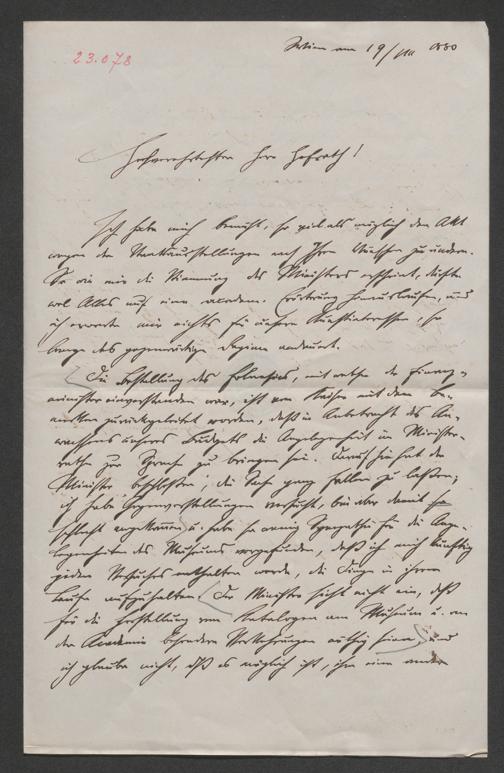 23.078
Wien am 19/VII 1880
Hochverehrtester Herr Hofrath!
Ich habe mich bemüht, so viel als möglich den Akt
wegen der Ausstellungen nach Ihren Wünschen zu ändern.
So wie mir die Stimmung des Ministers erscheint, dürfte
wol Alles auf eine academ. Erörterung hinauslaufen, und
ich erwarte mir nichts für unsere Kunstinteressen, so
lange das gegenwärtige Regime andauert.
Die Bestellung des Folnesics, mit welcher der Finanz-
minister einverstanden war, ist vom Kaiser mit dem Be-
merken zurückgeleitet worden, daß in Anbetracht des An-
wachsens unseres Budgets die Angelegenheit im Minister-
rathe zur Sprache zu bringen sei. Darauf hin hat der
Minister beschlossen, die Sache ganz fallen zu lassen;
ich habe Gegenvorstellungen versucht, bin aber damit so
schlecht angekommen u. habe so wenig Sympathie für die Ange-
legenheiten des Museums vorgefunden, daß ich mich künftig
jeden Versuches enthalten werde, die Dinge in ihrem
Laufe aufzuhalten. Der Minister sieht nicht ein, daß
für die Herstellung von Katalogen am Museum u. an
der Academie besondere Vorkehrungen nöthig seien, und
ich glaube nicht, daß es möglich ist, ihm eine andere